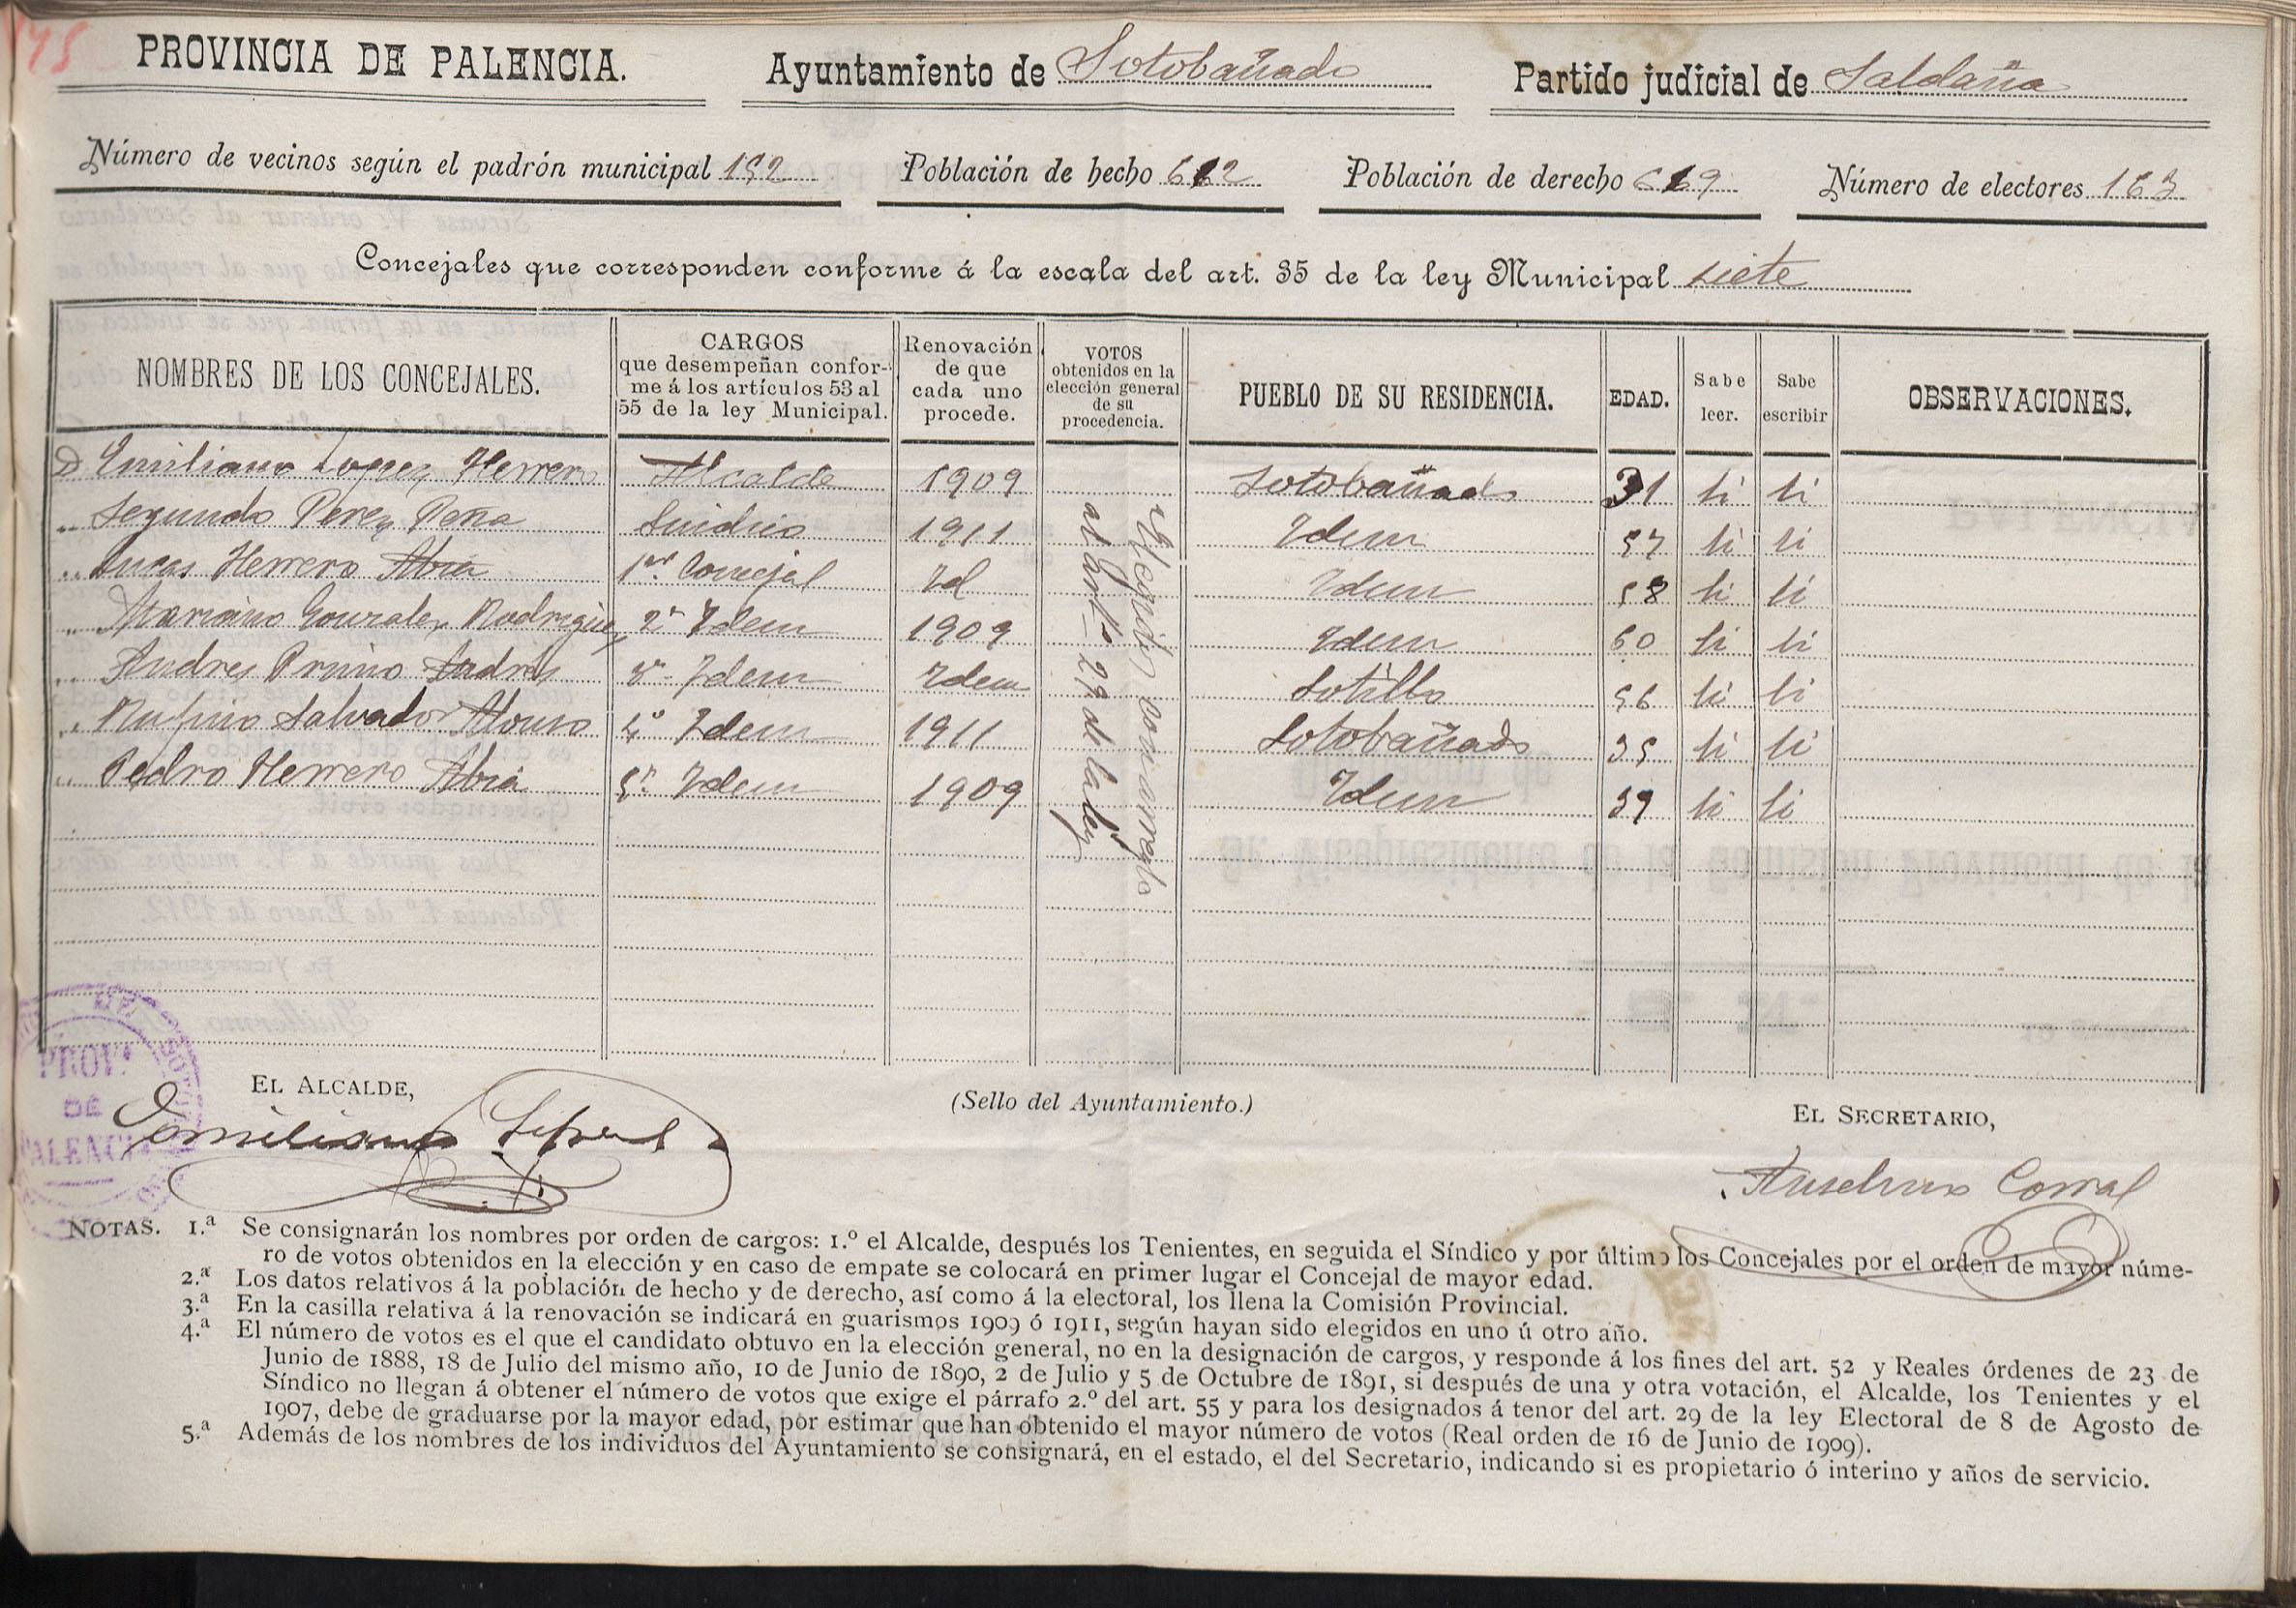 175
PROVINCIA DE PALENCIA. Ayuntamiento de Sotobañado Partido judicial de Saldaña
Número de vecinos según el padrón municipal 152 Población de hecho 612 Población de derecho 619 Número de electores 163
Concejales que corresponden conforme á la escala del art. 35 de la ley Municipal siete
NOMBRES DE LOS CONCEJALES. CARGOS que desempeñan conforme á los artículos 53 al 55 de la ley Municipal. Renovación de que cada uno procede. VOTOS obtenidos en la elección general de su procedencia. PUEBLO DE SU RESIDENCIA. EDAD. Sabe leer. Sabe escribir OBSERVACIONES.
D Emiliano Lopez Herrero Alcalde 1909 Sotobañado 31 si si
.. Segundo Perez Peña Sindico 1911 Idem 57 si si
.. Lucas Herrero Abia 1er Concejal Id Idem 58 si si
.. Mariano Gonzalez Rodriguez 2º Idem 1909 Idem 60 si si
.. Andres Primo Andres 3º Idem Idem Sotillo 56 si si
.. Rufino Salvador Alonso 4º Idem 1911 Sotobañado 35 si si
.. Pedro Herrero Abia 5º Idem 1909 Idem 39 si si
Elegidos con arreglo
al artº 29 de la ley
EL ALCALDE,
(Sello del Ayuntamiento.)
EL SECRETARIO,
PROV.ª
DE
PALENCIA
Emiliano Lopez
Anselmo Corral
NOTAS. 1.ª Se consignarán los nombres por orden de cargos: 1.º el Alcalde, después los Tenientes, en seguida el Síndico y por último los Concejales por el orden de mayor núme-
ro de votos obtenidos en la elección y en caso de empate se colocará en primer lugar el Concejal de mayor edad.
2.ª Los datos relativos á la población de hecho y de derecho, así como á la electoral, los llena la Comisión Provincial.
3.ª En la casilla relativa á la renovación se indicará en guarismos 1909 ó 1911, según hayan sido elegidos en uno ú otro año.
4.ª El número de votos es el que el candidato obtuvo en la elección general, no en la designación de cargos, y responde á los fines del art. 52 y Reales órdenes de 23 de
Junio de 1888, 18 de Julio del mismo año, 10 de Junio de 1890, 2 de Julio y 5 de Octubre de 1891, si después de una y otra votación, el Alcalde, los Tenientes y el
Síndico no llegan á obtener el número de votos que exige el párrafo 2.º del art. 55 y para los designados á tenor del art. 29 de la ley Electoral de 8 de Agosto de
1907, debe de graduarse por la mayor edad, por estimar que han obtenido el mayor número de votos (Real orden de 16 de Junio de 1909).
5.ª Además de los nombres de los individuos del Ayuntamiento se consignará, en el estado, el del Secretario, indicando si es propietario ó interino y años de servicio.